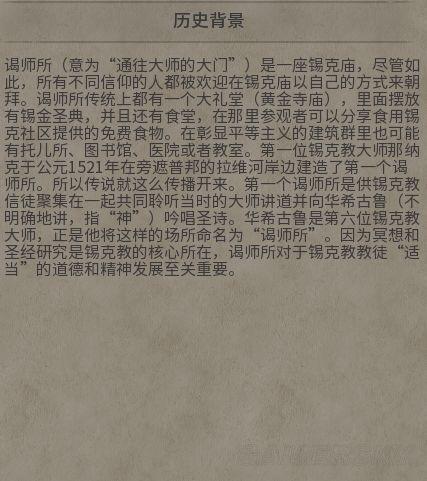 历史背景
谒师所（意为“通往大师的大门”）是一座锡克庙，尽管如
此，所有不同信仰的人都被欢迎在锡克庙以自己的方式来朝
拜。谒师所传统上都有一个大礼堂（黄金寺庙），里面摆放
有锡金圣典，并且还有食堂，在那里参观者可以分享食用锡
克社区提供的免费食物。在彰显平等主义的建筑群里也可能
有托儿所、图书馆、医院或者教室。第一位锡克教大师那纳
克于公元1521年在旁遮普邦的拉维河岸边建造了第一个谒
师所。所以传说就这么传播开来。第一个谒师所是供锡克教
信徒聚集在一起共同聆听当时的大师讲道并向华希古鲁（不
明确地讲，指“神”）吟唱圣诗。华希古鲁是第六位锡克教
大师，正是他将这样的场所命名为“谒师所”。因为冥想和
圣经研究是锡克教的核心所在，谒师所对于锡克教教徒“适
当”的道德和精神发展至关重要。